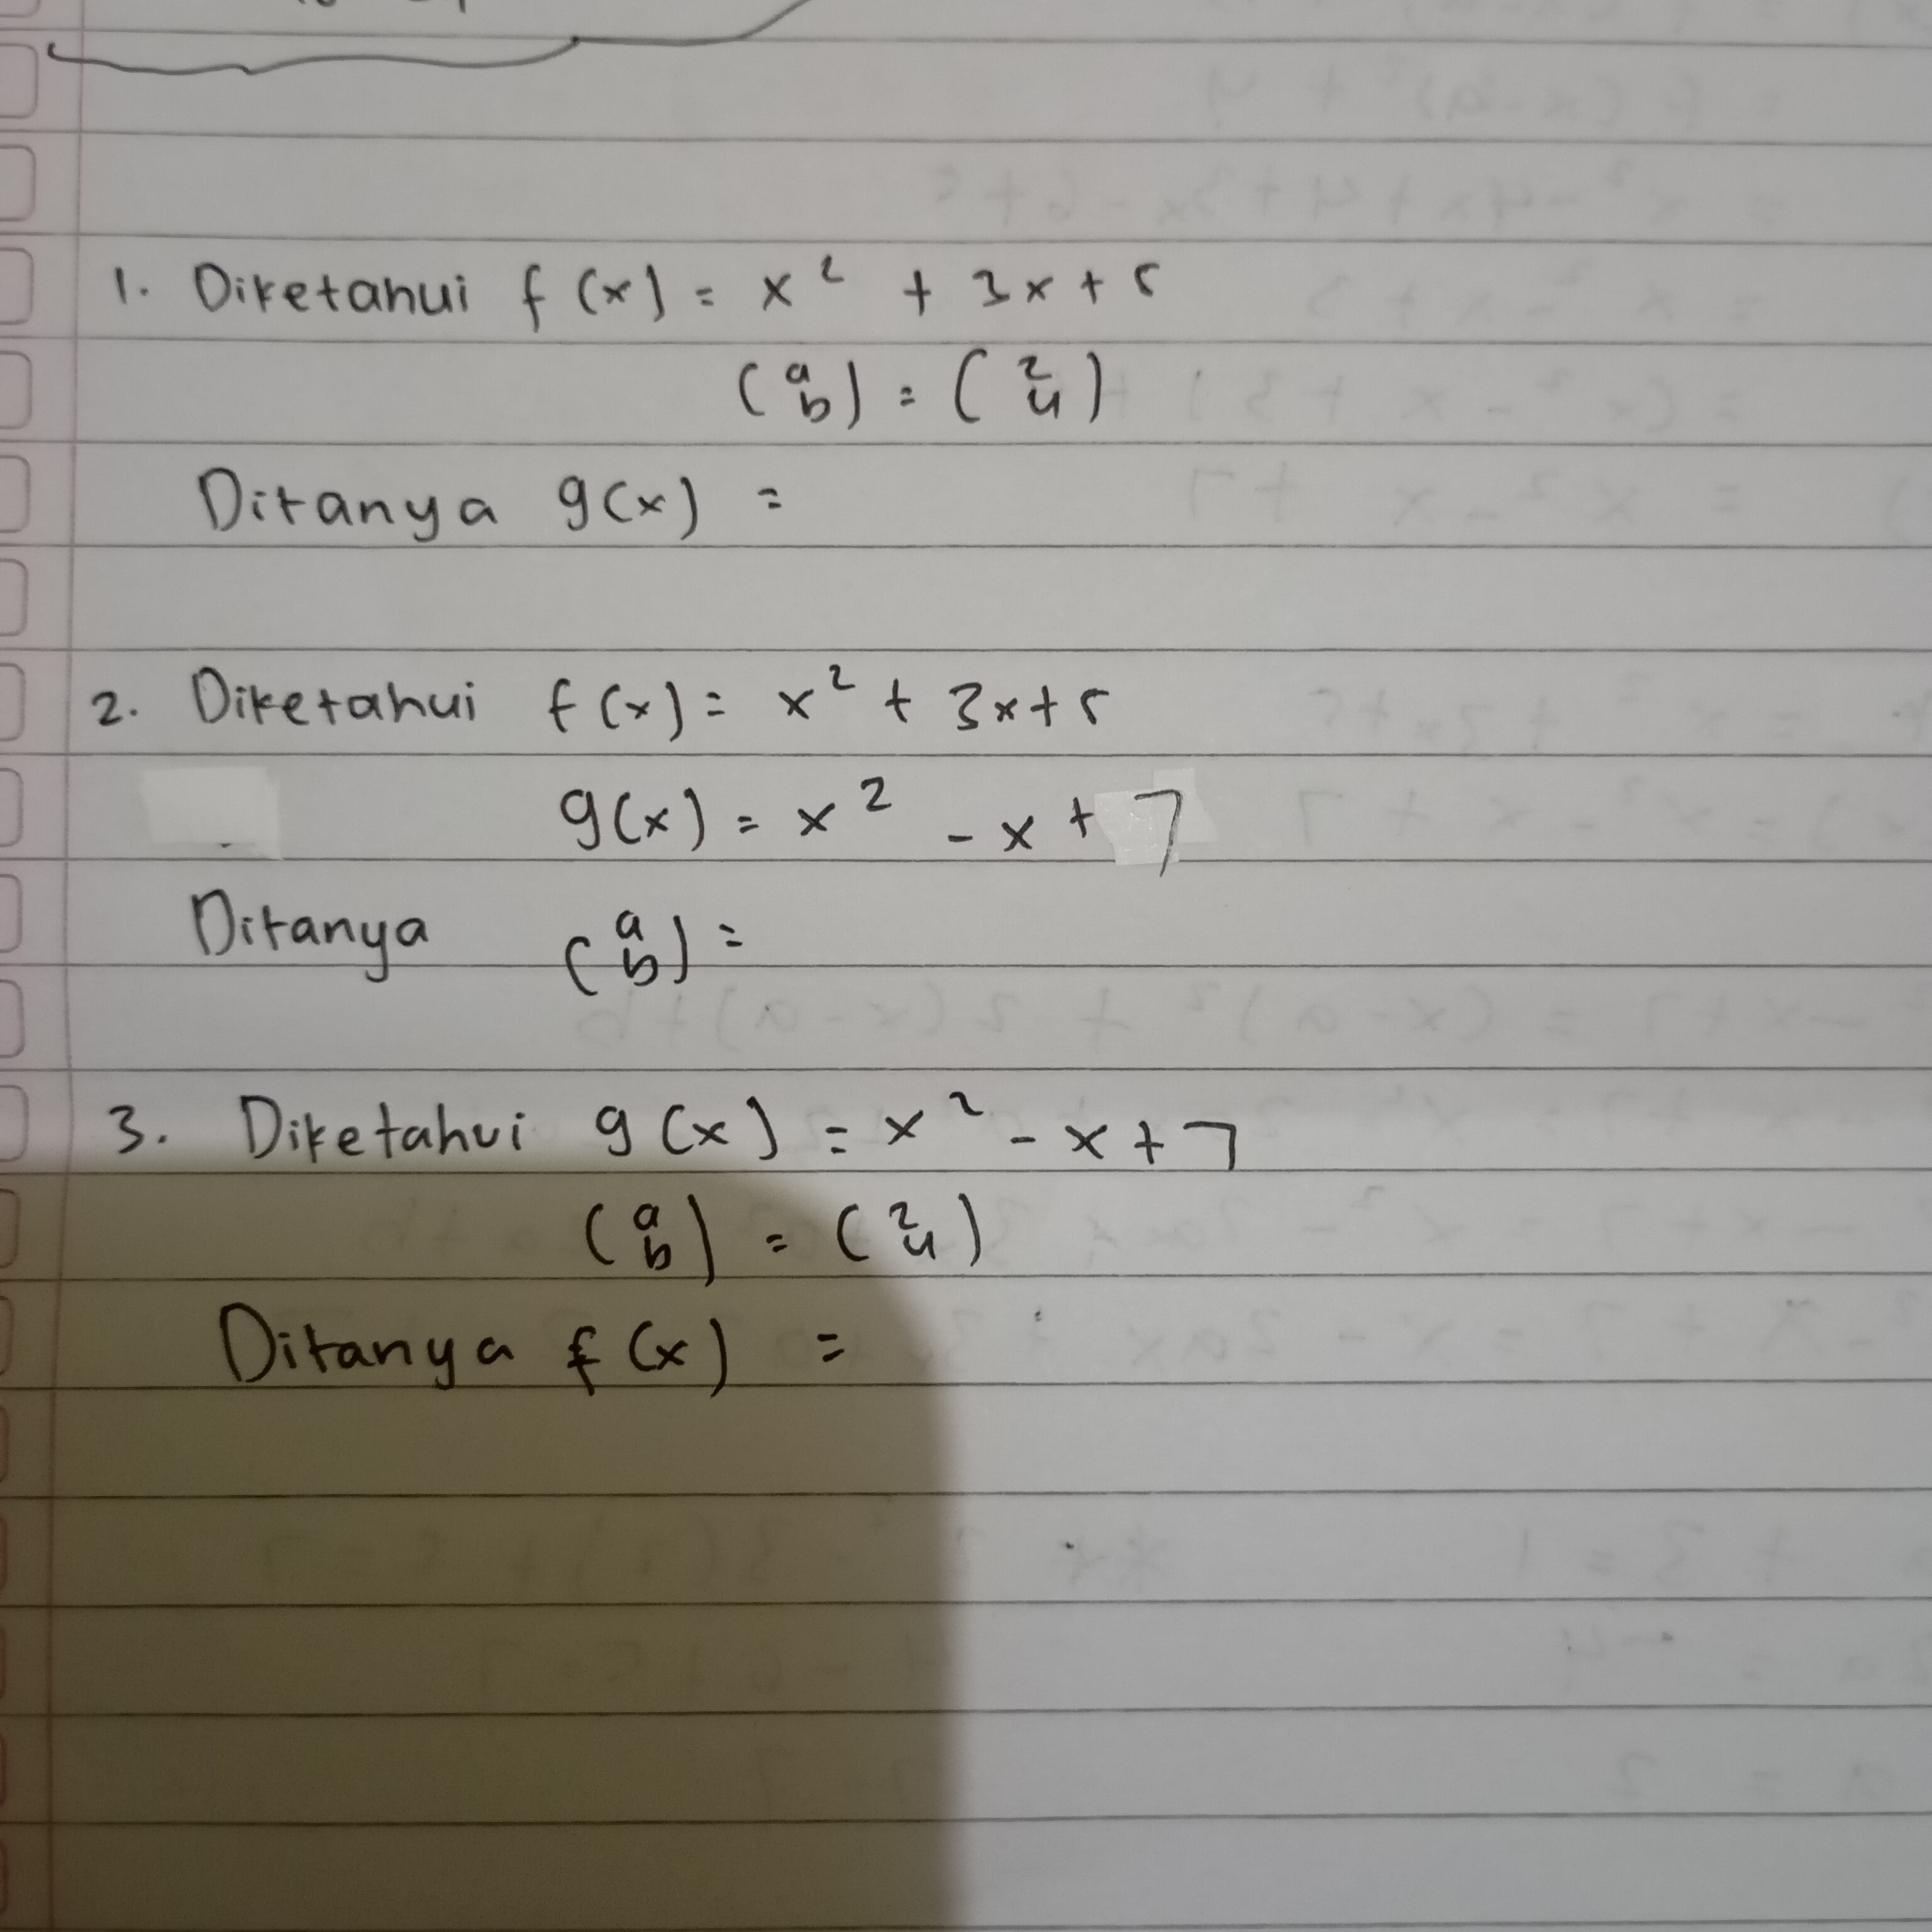 1. Diketahui f(x) = x² + 3x + 5
(a b) = (2 4)
Ditanya g(x) =
2. Diketahui f(x) = x² + 3x + 5
g(x) = x² - x + 7
Ditanya (a b) =
3. Diketahui g(x) = x² - x + 7
(a b) = (2 4)
Ditanya f(x) =